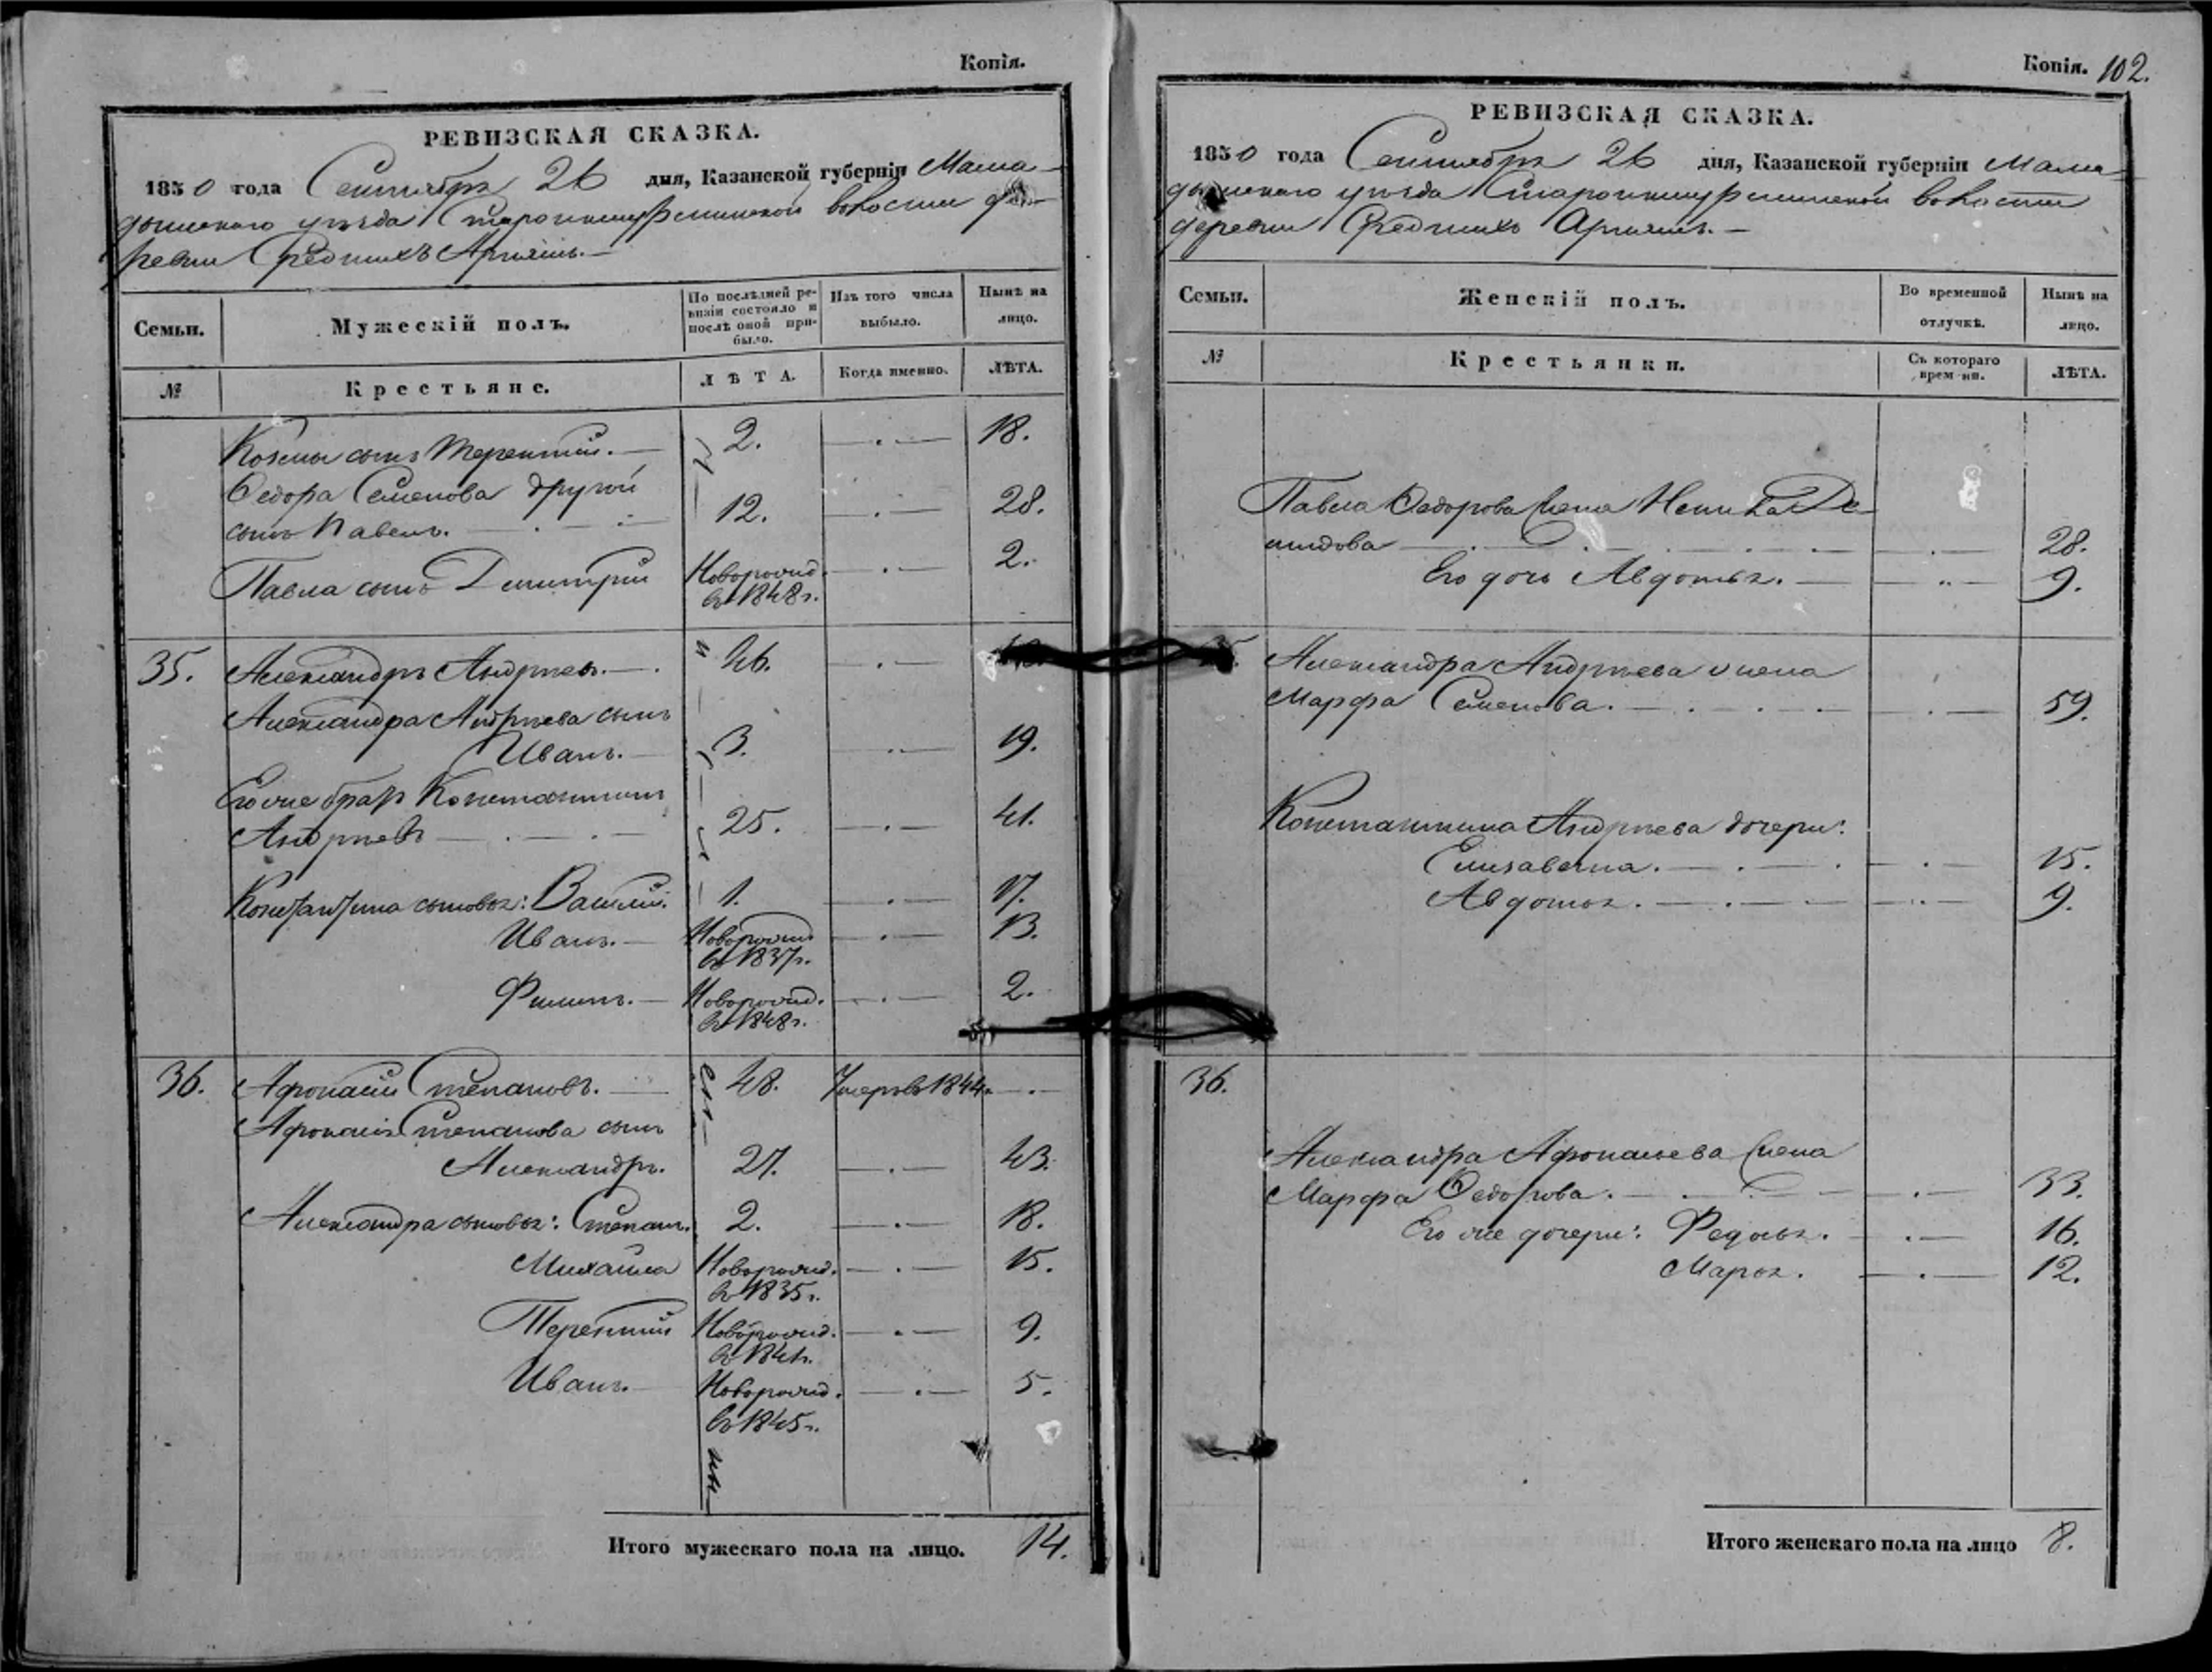 Копія.
РЕВИЗСКАЯ СКАЗКА.
1850 года Сентября 26 дня, Казанской губерніи Мама-
дышскаго уѣзда волости де-
ревни Среднихъ
Семьи.
Мужескій полъ.
По послѣдней ре-
визіи состояло и
послѣ оной при-
было.
Изъ того числа
выбыло.
Нынѣ на
лицо.
№
Крестьяне.
ЛѢТА.
Когда именно.
ЛѢТА.
Козмы сынъ Терентий. — 2. — . — 18.
Ѳедора Семенова другой
сынъ Павелъ. — . — 12. — . — 28.
Павла сынъ Димитрий Новорожд. — . — 2.
въ 1848 г.
35. Александръ Андреевъ. — . 46. — . —
Александра Андреева сынъ
Иванъ. — 3. — . — 19.
Его же братъ Константинъ
Андреевъ — . — . — 25. — . — 41.
Константина сыновья: Василий. 1. — . — 17.
Иванъ. — Новорожд. — . — 13.
въ 1837 г.
Филипъ. — Новорожд. — . — 2.
въ 1848 г.
36. Афонасий Степановъ. — 48. Умеръ въ 1844 г. — . —
Афонасія Степанова сынъ
Александръ. 27. — . — 43.
Александра сыновья: Степанъ. 2. — . — 18.
Михаила Новорожд. — . — 15.
въ 1835 г.
Терентий Новорожд. — . — 9.
въ 1841 г.
Иванъ. — Новорожд. — . — 5.
въ 1845 г.
Итого мужескаго пола на лицо. 14.
Копія. 102.
РЕВИЗСКАЯ СКАЗКА.
1850 года Сентября 26 дня, Казанской губерніи Мама-
дышскаго уѣзда волости
деревни Среднихъ
Семьи.
Женскій полъ.
Во временной
отлучкѣ.
Нынѣ на
лицо.
№
Крестьянки.
Съ котораго
времени.
ЛѢТА.
Павла Ѳедорова жена Де-
мидова — . — . — 28.
Его дочь Авдотья. — . — 9.
Александра Андреева жена
Марфа Семенова. — . — . — 59.
Константина Андреева дочери:
Елизавета. — . — . — 15.
Авдотья. — . — . — 9.
36.
Александра Афонасьева жена
Марфа Ѳедорова. — . — 33.
Его же дочери: Федосья. — . — 16.
Марья. — . — 12.
Итого женскаго пола на лицо 8.